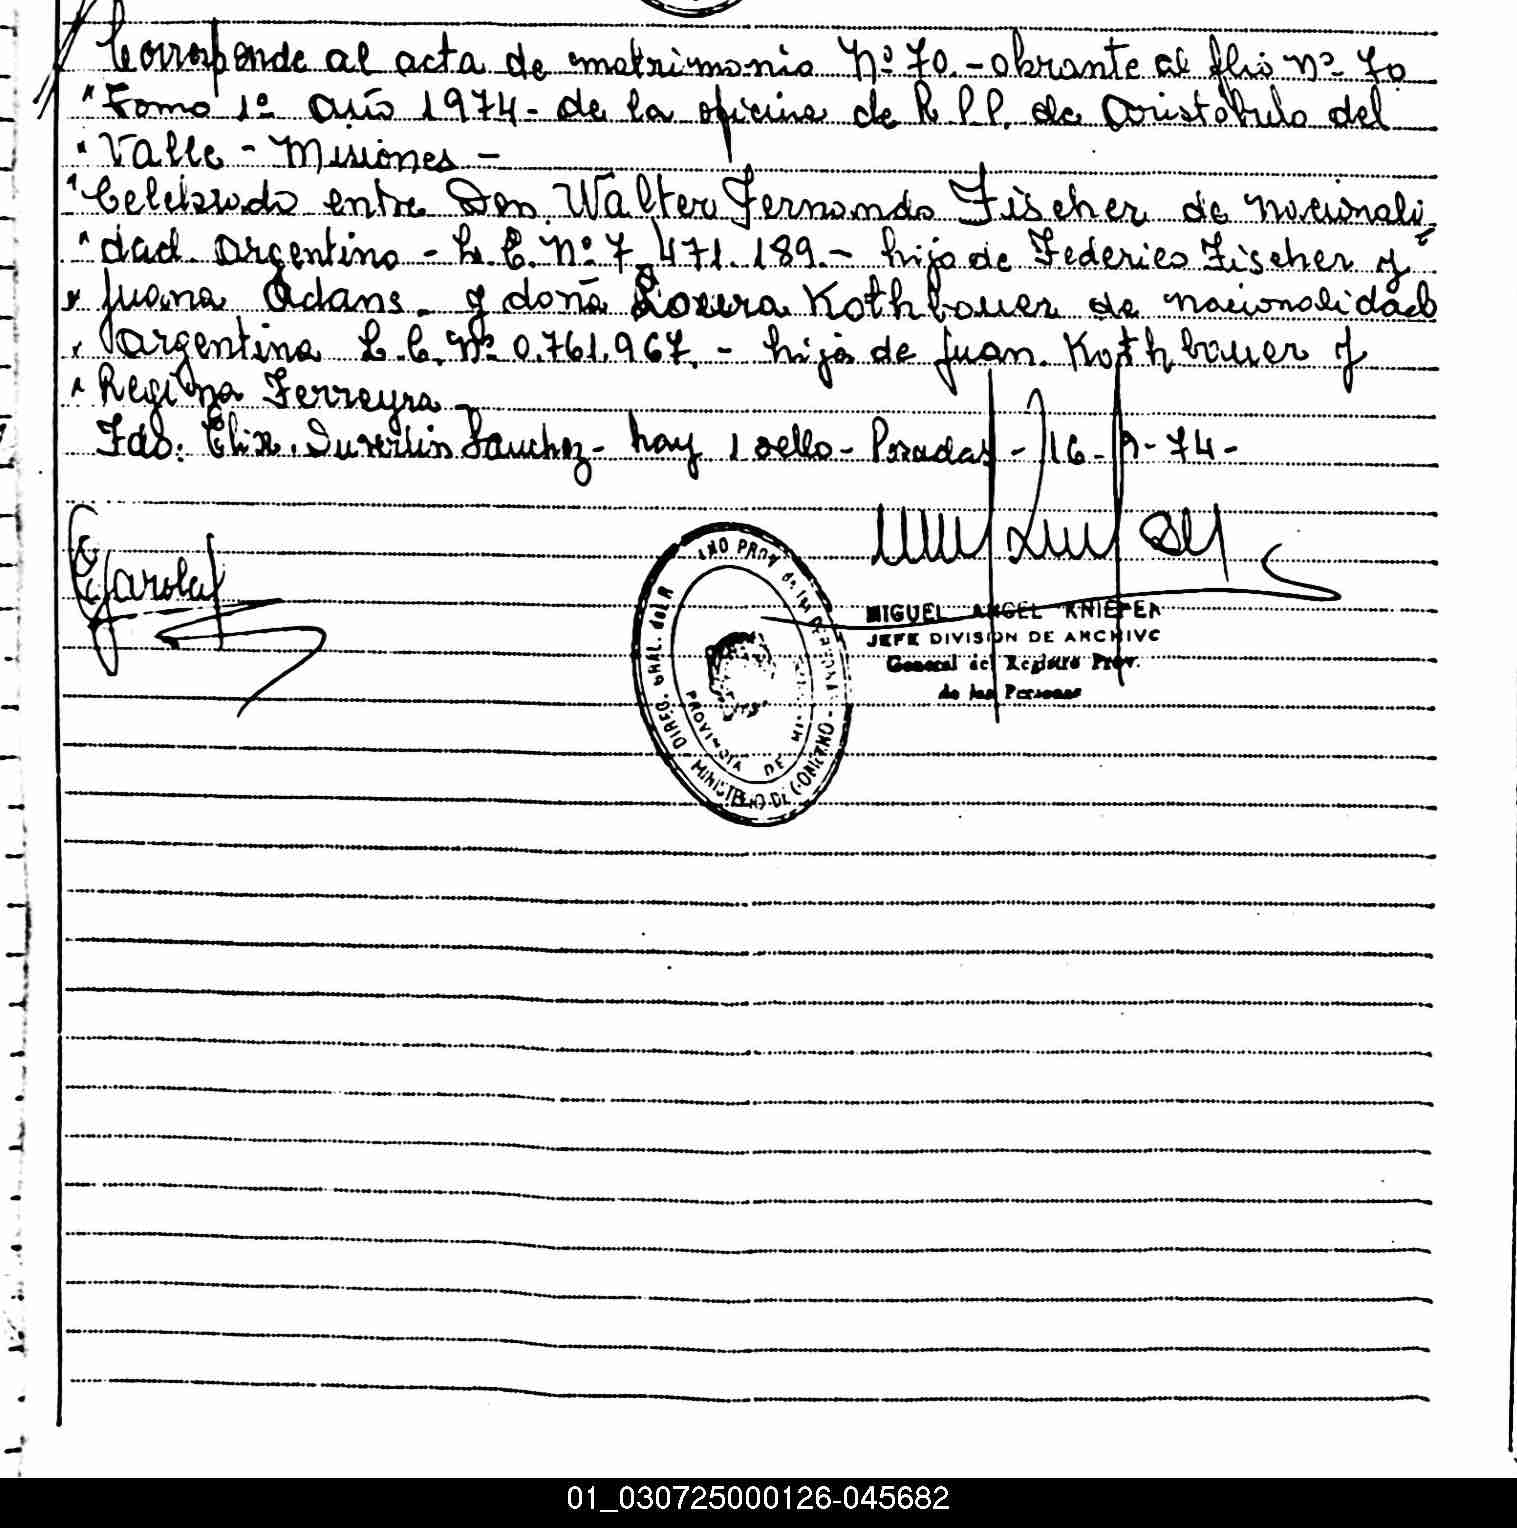 Corresponde al acta de matrimonio Nº 70.- obrante al flio nº 70
" Tomo 1º año 1974 - de la oficina de R.P.P. de Aristóbulo del
" Valle - Misiones -
" Celebrado entre Don Walter Fernando Fischer de nacionali
" dad argentino - L.E. Nº 7.471.189.- hijo de Federico Fischer y
" Juana Adans. y doña Laura Kothbauer de nacionalidad
" argentina L.C. Nº 0.761.967. - hija de Juan Kothbauer y
" Regina Ferreyra -
Fdo: Sanchez - hay 1 sello - Posadas - 16 - 9 - 74 -
MIGUEL ANGEL KNIEPER
JEFE DIVISION DE ARCHIVO
General del Registro Prov.
de las Personas
DIREC. GRAL. del R PROV de las PERSONAS - MINISTERIO DE GOBIERNO
PROVINCIA DE MI
01_030725000126-045682